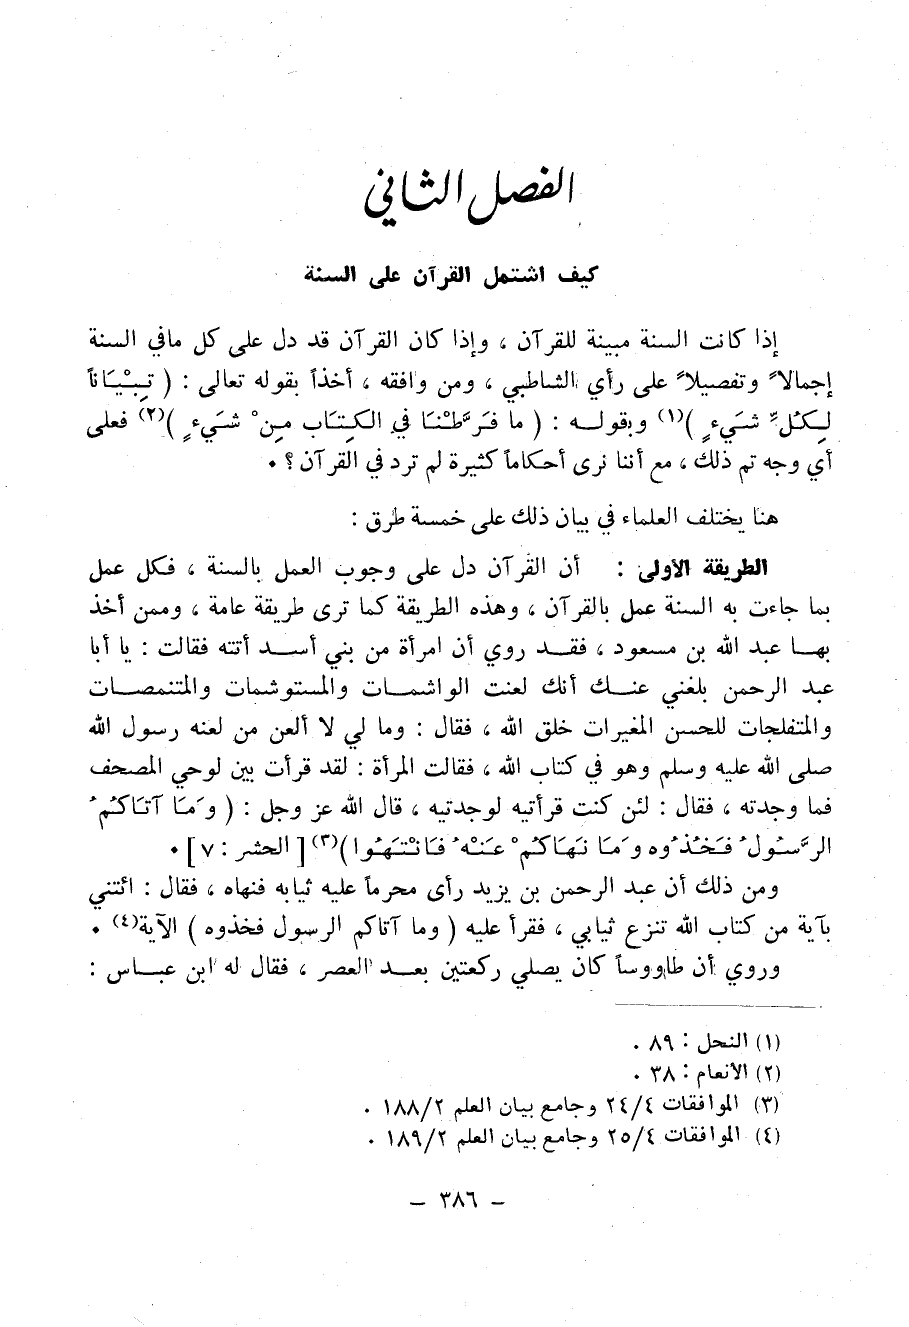 الفصل الثاني
كيف اشتمل القرآن على السنة
إذا كانت السنة مبينة للقرآن ، وإذا كان القرآن قد دل على كل مافي السنة
إجمالاً وتفصيلاً على رأي الشاطبي ، ومن وافقه ، أخذاً بقوله تعالى : ( تِبْيَاناً
لِكُلِّ شَيءٍ )(١) وبقولـه : ( ما فَرَّطْنَا فِي الكِتَابِ مِنْ شَيءٍ )(٢) فعلى
أي وجه تم ذلك ، مع أننا نرى أحكاماً كثيرة لم ترد في القرآن ؟ .
هنا يختلف العلماء في بيان ذلك على خمسة طرق :
الطريقة الأولى : أن القرآن دل على وجوب العمل بالسنة ، فكل عمل
بما جاءت به السنة عمل بالقرآن ، وهذه الطريقة كما ترى طريقة عامة ، وممن أخذ
بهـا عبد الله بن مسعود ، فقـد روي أن امرأة من بني أسـد أتته فقالت : يا أبا
عبد الرحمن بلغني عنـك أنك لعنت الواشمـات والمستوشمات والمتنمصـات
والمتفلجات للحسن المغيرات خلق الله ، فقال : وما لي لا ألعن من لعنه رسول الله
صلى الله عليه وسلم وهو في كتاب الله ، فقالت المرأة : لقد قرأت بين لوحي المصحف
فما وجدته ، فقال : لئن كنت قرأتيه لوجدتيه ، قال الله عز وجل : ( وَمَا آتَاكُمُ
الرَّسُولُ فَخُذُوه وَمَا نَهَاكُمْ عَنْهُ فَانْتَهُوا )(٣) [ الحشر : ٧ ] .
ومن ذلك أن عبد الرحمن بن يزيد رأى محرماً عليه ثيابه فنهاه ، فقال : ائتني
بآية من كتاب الله تنزع ثيابي ، فقرأ عليه ( وما آتاكم الرسول فخذوه ) الآية(٤) .
وروي أن طاووساً كان يصلي ركعتين بعـد العصر ، فقال له ابن عبـاس :
(١) النحل : ٨٩ .
(٢) الأنعام : ٣٨ .
(٣) الموافقات ٢٤/٤ وجامع بيان العلم ١٨٨/٢ .
(٤) الموافقات ٢٥/٤ وجامع بيان العلم ١٨٩/٢ .
– ٣٨٦ –